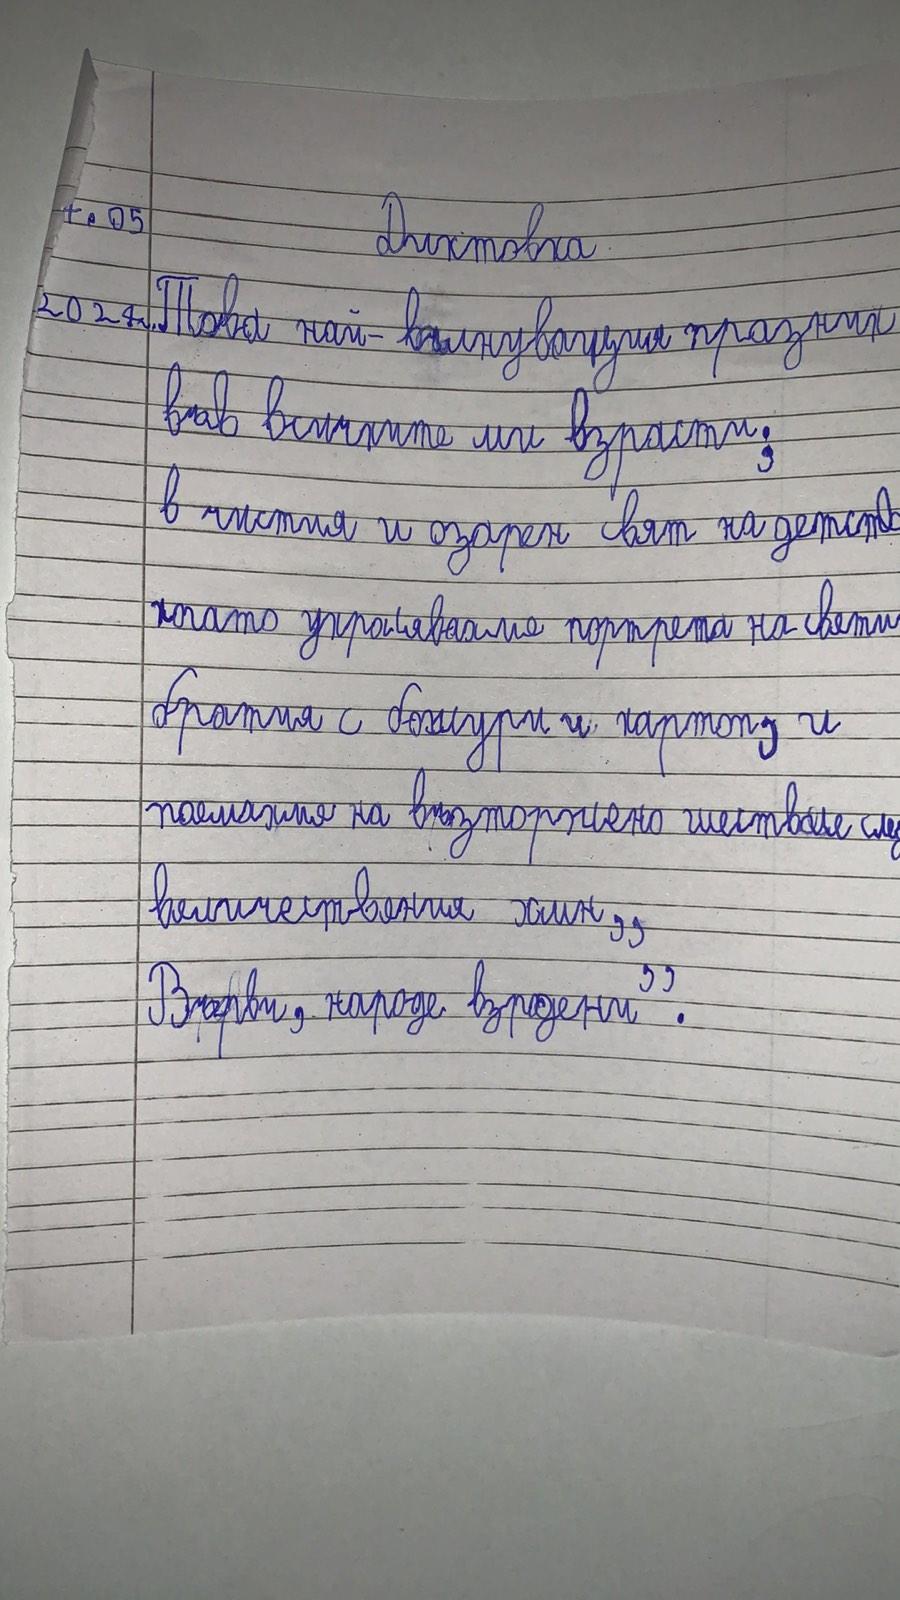 Диктовка
Това най-вълнуващия празник
във всичките ми взрасти;
в чистия и озарен свят на детств
когато украсяваме портрета на свети
братия с божури и картон, и
на възторжено шествие след
величествения химн,,
Върви, народе взродени".